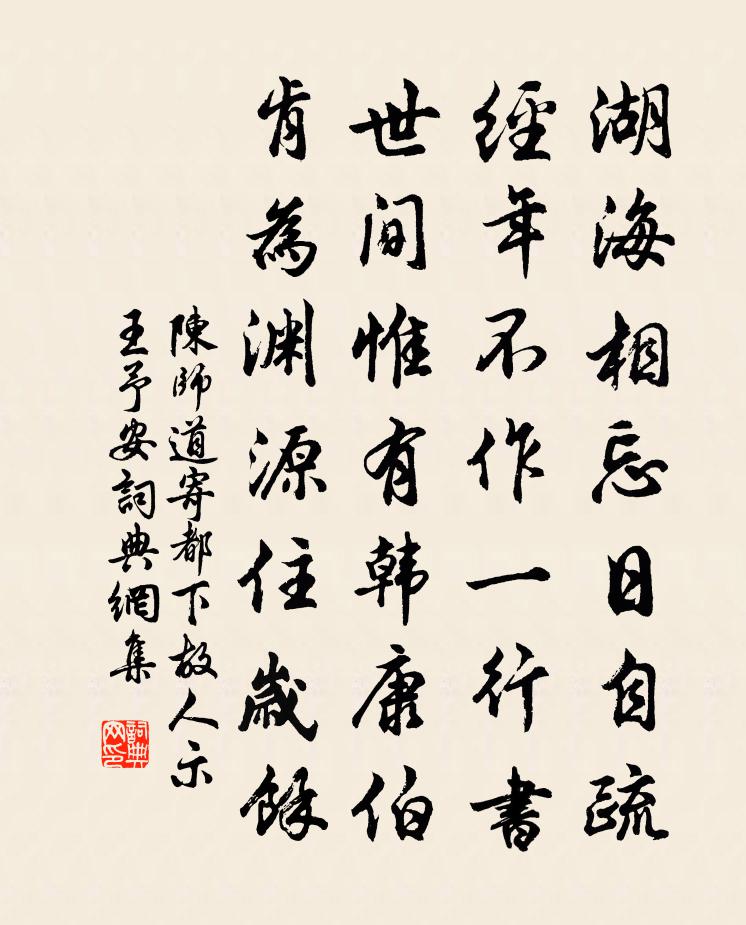 湖海相忘日自疏
經年不作一行書
世间惟有韩康伯
肯為渊源住歲餘
陳師道寄都下故人示
王予安詞典網集
詞典网印